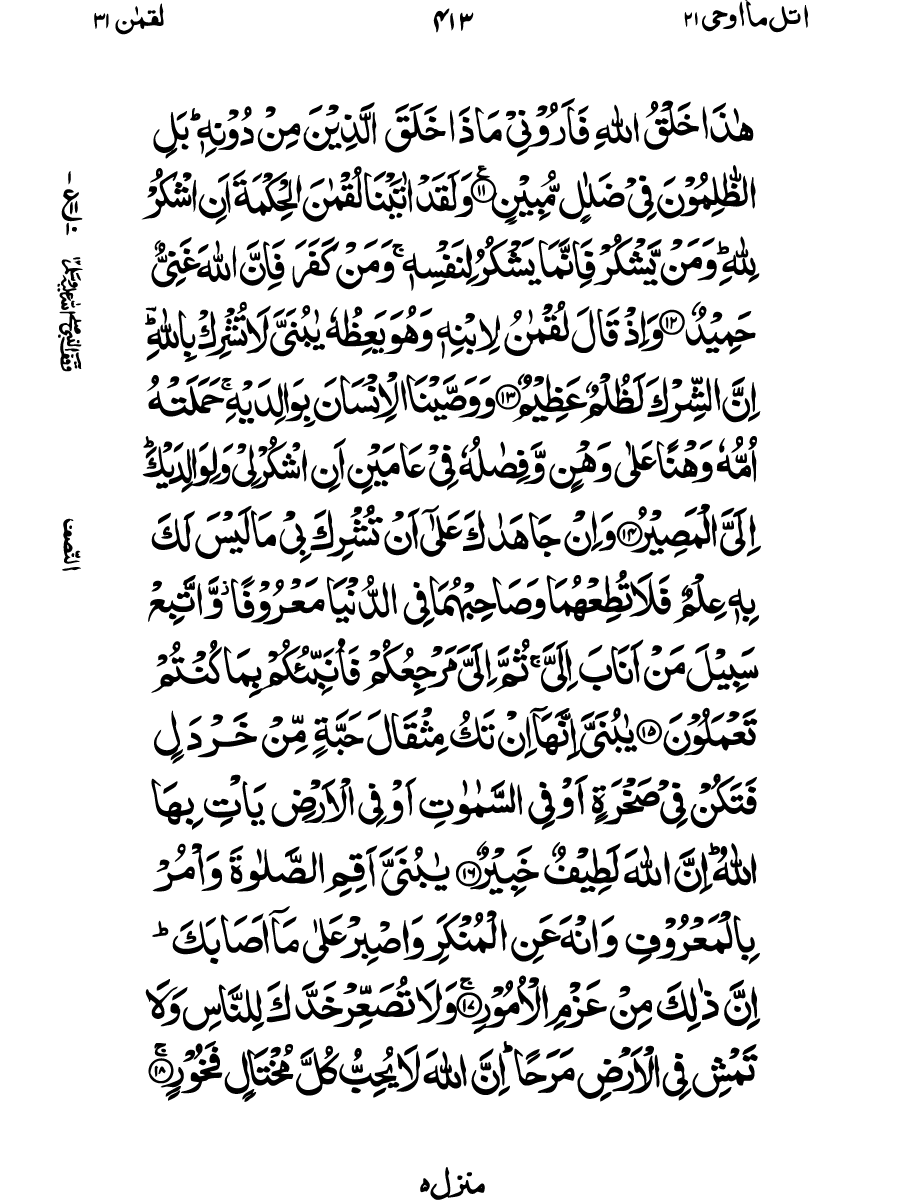 اتل ماا وحی ۲۱
۴۱۳
لقمٰن ۳۱
هٰذَا خَلْقُ اللّٰهِ فَاَرُوْنِیْ مَاذَا خَلَقَ الَّذِیْنَ مِنْ دُوْنِهٖ ؕ بَلِ
الظّٰلِمُوْنَ فِیْ ضَلٰلٍ مُّبِیْنٍ ۠﴿۱۱﴾ وَلَقَدْ اٰتَیْنَا لُقْمٰنَ الْحِكْمَةَ اَنِ اشْكُرْ
لِلّٰهِ ؕ وَمَنْ یَّشْكُرْ فَاِنَّمَا یَشْكُرُ لِنَفْسِهٖ ۚ وَمَنْ كَفَرَ فَاِنَّ اللّٰهَ غَنِیٌّ
حَمِیْدٌ ﴿۱۲﴾ وَاِذْ قَالَ لُقْمٰنُ لِابْنِهٖ وَهُوَ یَعِظُهٗ یٰبُنَیَّ لَا تُشْرِكْ بِاللّٰهِ ؔؕ
اِنَّ الشِّرْكَ لَظُلْمٌ عَظِیْمٌ ﴿۱۳﴾ وَوَصَّیْنَا الْاِنْسَانَ بِوَالِدَیْهِ ۚ حَمَلَتْهُ
اُمُّهٗ وَهْنًا عَلٰی وَهْنٍ وَّفِصٰلُهٗ فِیْ عَامَیْنِ اَنِ اشْكُرْ لِیْ وَلِوَالِدَیْكَ ؕ
اِلَیَّ الْمَصِیْرُ ﴿۱۴﴾ وَاِنْ جَاهَدٰكَ عَلٰۤی اَنْ تُشْرِكَ بِیْ مَا لَیْسَ لَكَ
بِهٖ عِلْمٌ فَلَا تُطِعْهُمَا وَصَاحِبْهُمَا فِی الدُّنْیَا مَعْرُوْفًا ؗ وَّاتَّبِعْ
سَبِیْلَ مَنْ اَنَابَ اِلَیَّ ۚ ثُمَّ اِلَیَّ مَرْجِعُكُمْ فَاُنَبِّئُكُمْ بِمَا كُنْتُمْ
تَعْمَلُوْنَ ﴿۱۵﴾ یٰبُنَیَّ اِنَّهَاۤ اِنْ تَكُ مِثْقَالَ حَبَّةٍ مِّنْ خَرْدَلٍ
فَتَكُنْ فِیْ صَخْرَةٍ اَوْ فِی السَّمٰوٰتِ اَوْ فِی الْاَرْضِ یَاْتِ بِهَا
اللّٰهُ ؕ اِنَّ اللّٰهَ لَطِیْفٌ خَبِیْرٌ ﴿۱۶﴾ یٰبُنَیَّ اَقِمِ الصَّلٰوةَ وَاْمُرْ
بِالْمَعْرُوْفِ وَانْهَ عَنِ الْمُنْكَرِ وَاصْبِرْ عَلٰی مَاۤ اَصَابَكَ ؕ
اِنَّ ذٰلِكَ مِنْ عَزْمِ الْاُمُوْرِ ۚ﴿۱۷﴾ وَلَا تُصَعِّرْ خَدَّكَ لِلنَّاسِ وَلَا
تَمْشِ فِی الْاَرْضِ مَرَحًا ؕ اِنَّ اللّٰهَ لَا یُحِبُّ كُلَّ مُخْتَالٍ فَخُوْرٍ ۚ﴿۱۸﴾
وقف النبی صلی اللہ علیہ وسلم
النّصف
منزل ۵